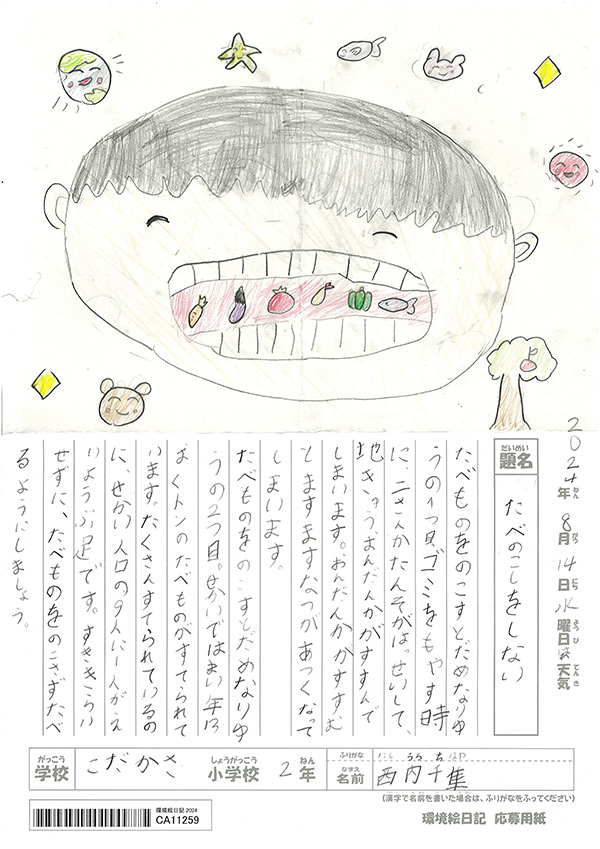 2024年8月14日水曜日 天気
ねん がつ にち ようび てんき
だいめい
題名
たべのこしをしない
たべものをのこすとだめなりゆ
うの1つ目。ゴミをもやす時
に、二さんかたんそがはっせいして、
地きゅうおんだんかがすすんで
しまいます。おんだんかがすすむ
とますますなつがあつくなって
しまいます。
たべものをのこすとだめなりゆ
うの2つ目。せかいではまい年13
おくトンのたべものがすてられて
います。たくさんすてられているの
に、せかい人口の9人に1人がえ
いようぶ足です。すききらい
せずに、たべものをのこさずたべ
るようにしましょう。
がっこう しょうがっこう ねん
学校 こだかさ 小学校 2年
ふりがな にし うち ち はや
なまえ
名前 西内千隼
(漢字で名前を書いた場合は、ふりがなをふってください)
環境絵日記 2024
CA11259
環境絵日記 応募用紙